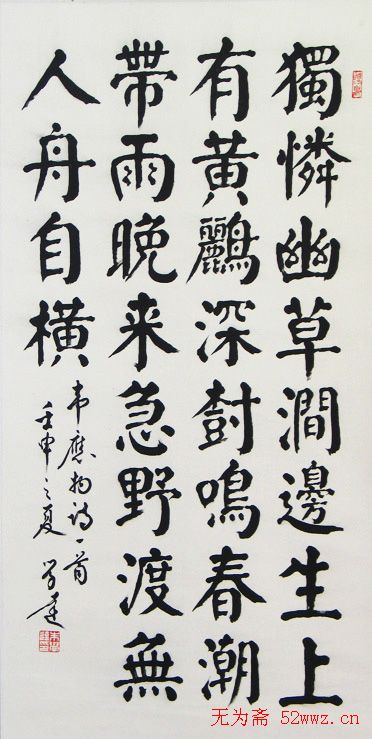 獨憐幽草澗邊生上
有黃鸝深樹鳴春潮
帶雨晚来急野渡無
人舟自橫
韦應物诗一首
壬申之夏
无为斋 52wwz.cn